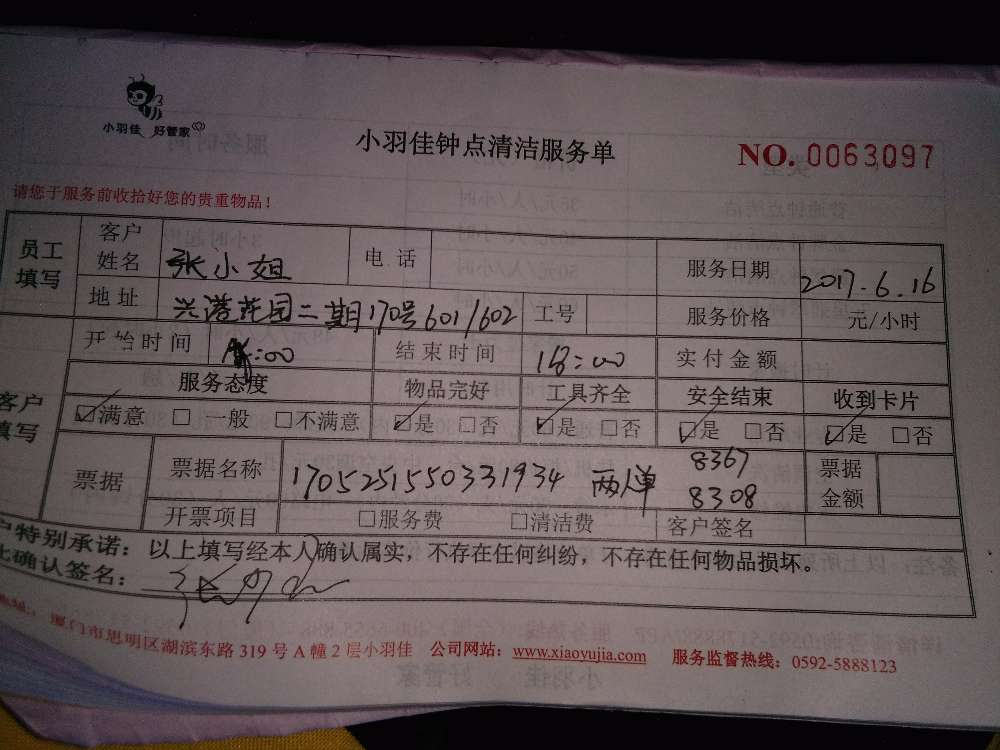 小羽佳 好管家
小羽佳钟点清洁服务单
NO. 0063097
请您于服务前收拾好您的贵重物品！
员工填写 客户姓名 张小姐 电话 服务日期 2017.6.16
地址 兴港花园二期170号601/602 工号 服务价格 元/小时
开始时间 :00 结束时间 18:00 实付金额
客户填写 服务态度 物品完好 工具齐全 安全结束 收到卡片
☑满意 □一般 □不满意 ☑是 □否 ☑是 □否 ☑是 □否 ☑是 □否
票据 票据名称 1705251550331934 两单 8367 8308 票据金额
开票项目 □服务费 □清洁费 客户签名
户特别承诺：以上填写经本人确认属实，不存在任何纠纷，不存在任何物品损坏。
上确认签名：
地址：厦门市思明区湖滨东路 319 号 A 幢 2 层小羽佳 公司网站：www.xiaoyujia.com 服务监督热线：0592-5888123